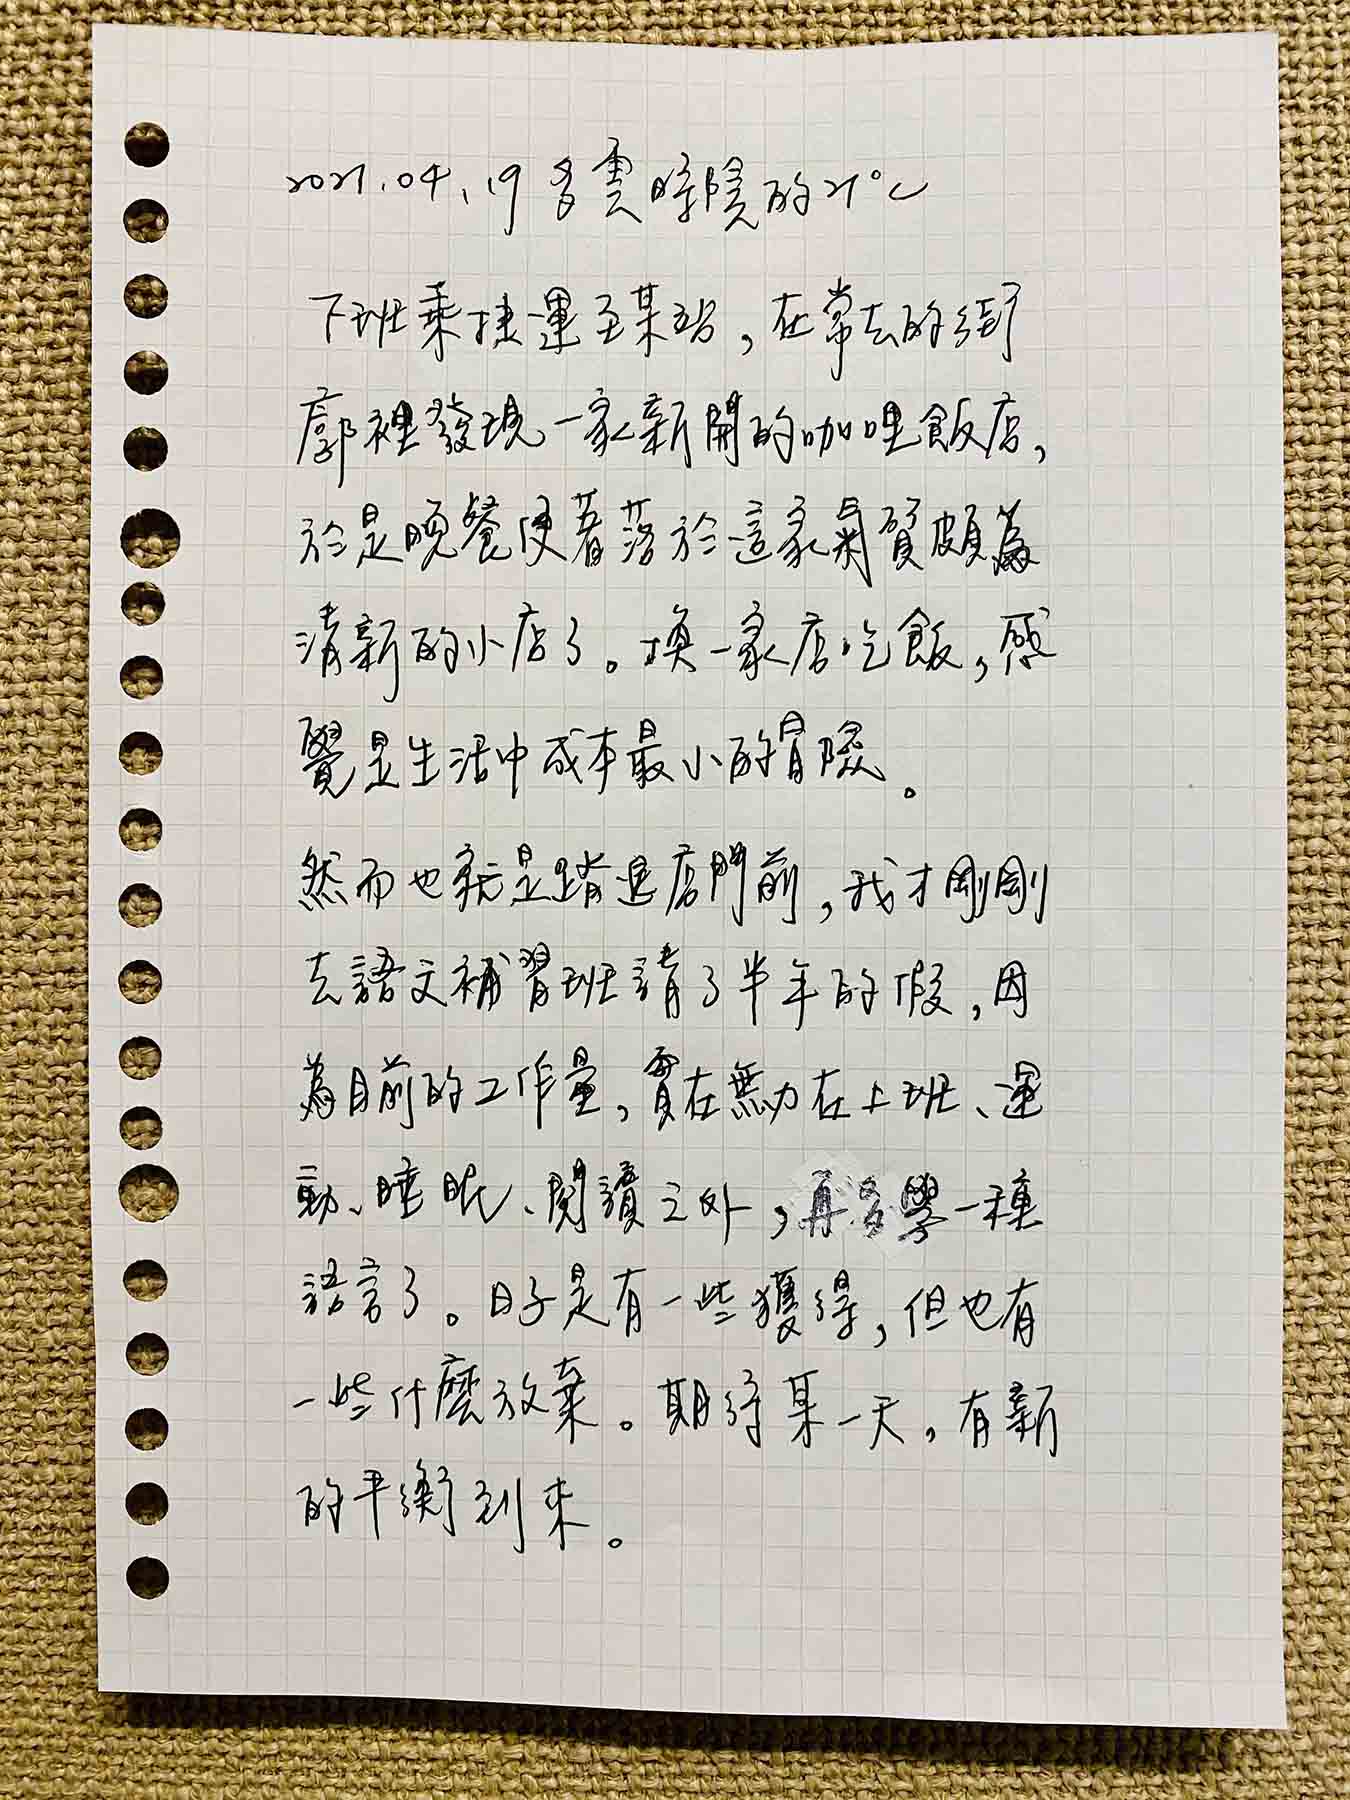 2021.04.19 多雲時陰的21°C
下班乘捷運至某站，在常去的街
廓裡發現一家新開的咖哩飯店，
於是晚餐便著落於這家氣質頗為
清新的小店了。換一家店吃飯，感
覺是生活中成本最小的冒險。
然而也就是踏進店門前，我才剛剛
去語文補習班請了半年的假，因
為目前的工作量，實在無力在上班、運
動、睡眠、閱讀之外，再多學一種
語言了。日子是有一些獲得，但也有
一些什麼放棄。期待某一天，有新
的平衡到來。